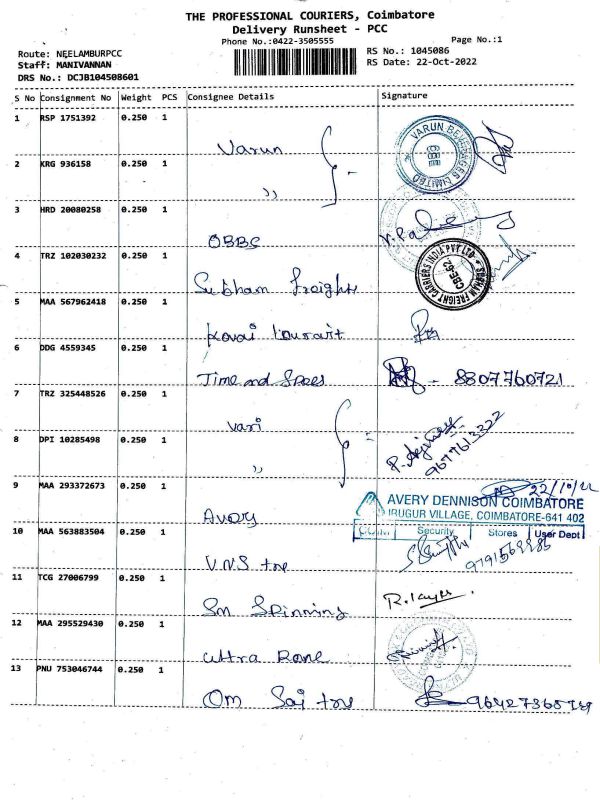 THE PROFESSIONAL COURIERS, Coimbatore
Delivery Runsheet - PCC
Phone No.:0422-3505555
Page No.:1
Route: NEELAMBURPCC
RS No.: 1045086
Staff: MANIVANNAN
RS Date: 22-Oct-2022
DRS No.: DCJB104508601
S No Consignment No Weight PCS Consignee Details Signature
1 RSP 1751392 0.250 1 Varun
VARUN BEVERAGES LIMITED
2 KRG 936158 0.250 1 ,,
3 HRD 20080258 0.250 1 OBBC
4 TRZ 102030232 0.250 1 Subham Freight
SUBHAM FREIGHT CARRIERS INDIA PVT LTD
CBE-62
5 MAA 567962418 0.250 1 Kovai
6 DDG 4559345 0.250 1 Time and Spees - 8807760721
7 TRZ 325448526 0.250 1 vari
8 DPI 10285498 0.250 1 ,,
9677613322
9 MAA 293372673 0.250 1 Avery
22/10/22
AVERY DENNISON COIMBATORE
IRUGUR VILLAGE, COIMBATORE-641 402
Security Stores User Dept
10 MAA 563883504 0.250 1 VNS tre
11 TCG 27006799 0.250 1 Sri Spinning
12 MAA 295529430 0.250 1 Uttra
13 PNU 753046744 0.250 1 Om Sai tre